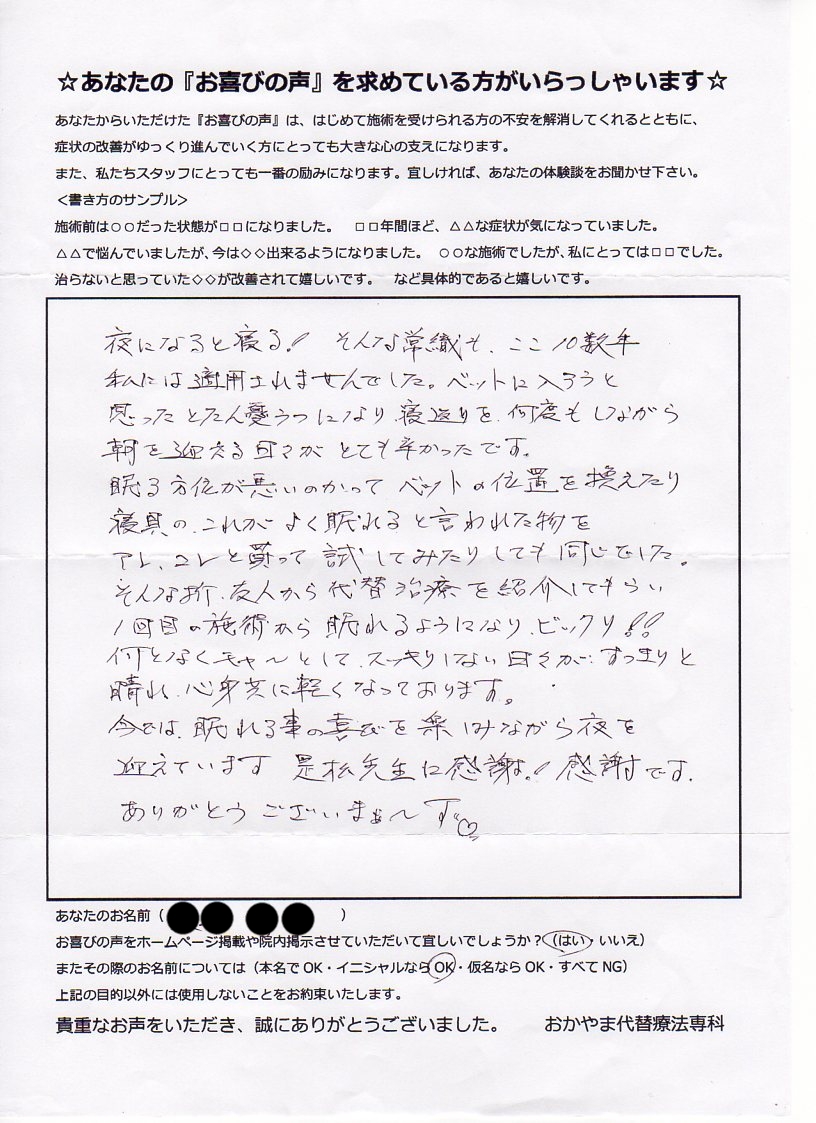 ☆あなたの『お喜びの声』を求めている方がいらっしゃいます☆
あなたからいただけた『お喜びの声』は、はじめて施術を受けられる方の不安を解消してくれるとともに、
症状の改善がゆっくり進んでいく方にとっても大きな心の支えになります。
また、私たちスタッフにとっても一番の励みになります。宜しければ、あなたの体験談をお聞かせ下さい。
＜書き方のサンプル＞
施術前は○○だった状態が□□になりました。　□□年間ほど、△△な症状が気になっていました。
△△で悩んでいましたが、今は◇◇出来るようになりました。　○○な施術でしたが、私にとっては□□でした。
治らないと思っていた◇◇が改善されて嬉しいです。　など具体的であると嬉しいです。
夜になると寝る！　そんな常識も、ここ10数年
私には適用されませんでした。ベットに入ろうと
思ったとたん憂うつになり、寝返りを何度もしながら
朝を迎える日々がとても辛かったです。
眠る方位が悪いのかってベットの位置を換えたり
寝具の、これがよく眠れると言われた物を
アレ、コレと買って試してみたりしても同じでした。
そんな折、友人から代替治療を紹介してもらい
1回目の施術から眠れるようになり、ビックリ!!
何となくモヤ〜として、スッキリしない日々が、すっきりと
晴れ、心身共に軽くなっております。
今では、眠れる事の喜びを楽しみながら夜を
迎えています　是松先生に感謝！感謝です。
ありがとうございまぁ〜す♡
あなたのお名前（　　　　）
お喜びの声をホームページ掲載や院内掲示させていただいて宜しいでしょうか？（はい・いいえ）
またその際のお名前については（本名でOK・イニシャルならOK・仮名ならOK・すべてNG）
上記の目的以外には使用しないことをお約束いたします。
貴重なお声をいただき、誠にありがとうございました。　　おかやま代替療法専科